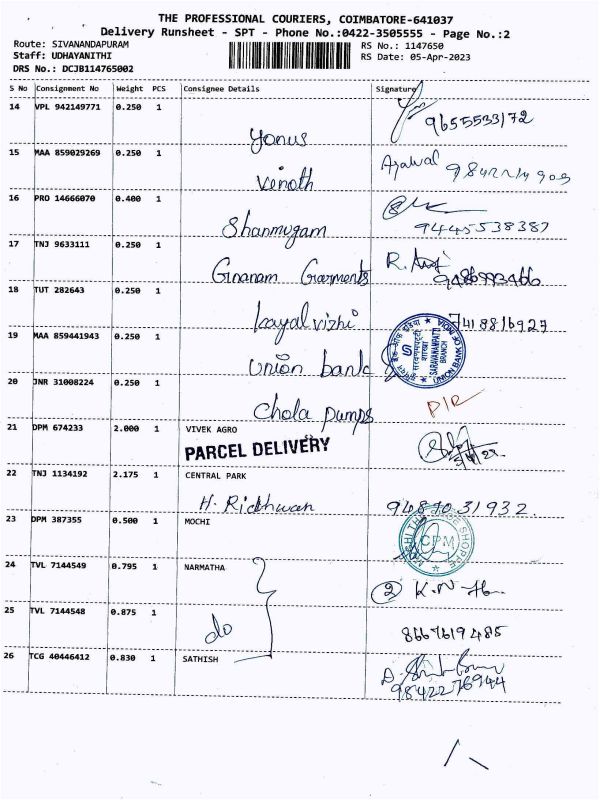 THE PROFESSIONAL COURIERS, COIMBATORE-641037
Delivery Runsheet - SPT - Phone No.:0422-3505555 - Page No.:2
Route: SIVANANDAPURAM
RS No.: 1147650
Staff: UDHAYANITHI
RS Date: 05-Apr-2023
DRS No.: DCJB114765002
S No Consignment No Weight PCS Consignee Details Signature
14 VPL 942149771 0.250 1
9655533172
Yonus
15 MAA 859029269 0.250 1
Venoth
16 PRO 14666070 0.400 1
Shanmugam
9445538387
17 TNJ 9633111 0.250 1
Gnanam Garments
18 TUT 282643 0.250 1
kayalvizhi
7418816927
19 MAA 859441943 0.250 1
union bank
UNION BANK OF INDIA
SARAVANAMPATTI
BRANCH
20 JNR 31008224 0.250 1
Chola pumps
21 DPM 674233 2.000 1 VIVEK AGRO
PARCEL DELIVERY
22 TNJ 1134192 2.175 1 CENTRAL PARK
H. Ridhwan 9487031932.
23 DPM 387355 0.500 1 MOCHI
CPM
24 TVL 7144549 0.795 1 NARMATHA
2
25 TVL 7144548 0.875 1
do
8667619485
26 TCG 40446412 0.830 1 SATHISH
9842276944